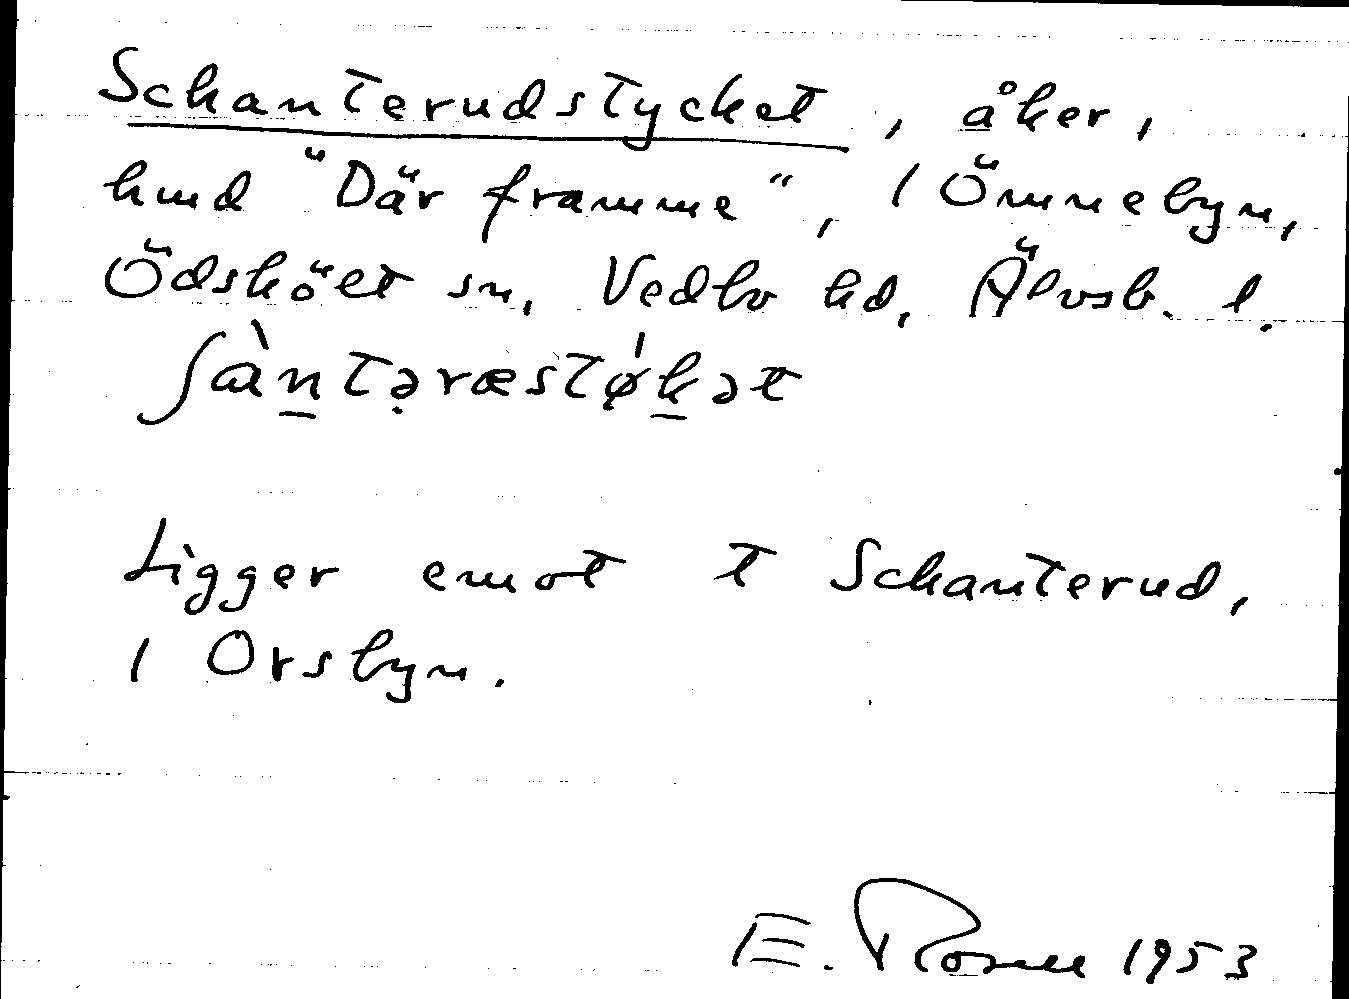 Schanterudstycket, åker,
hmd "Där framme", i Ömnebyn,
Ödskölt sn, Vedbo hd, Älvsb. l.
ʃàntəræstø̀kət
Ligger emot t Schanterud,
i Orsbyn.
E. 1953